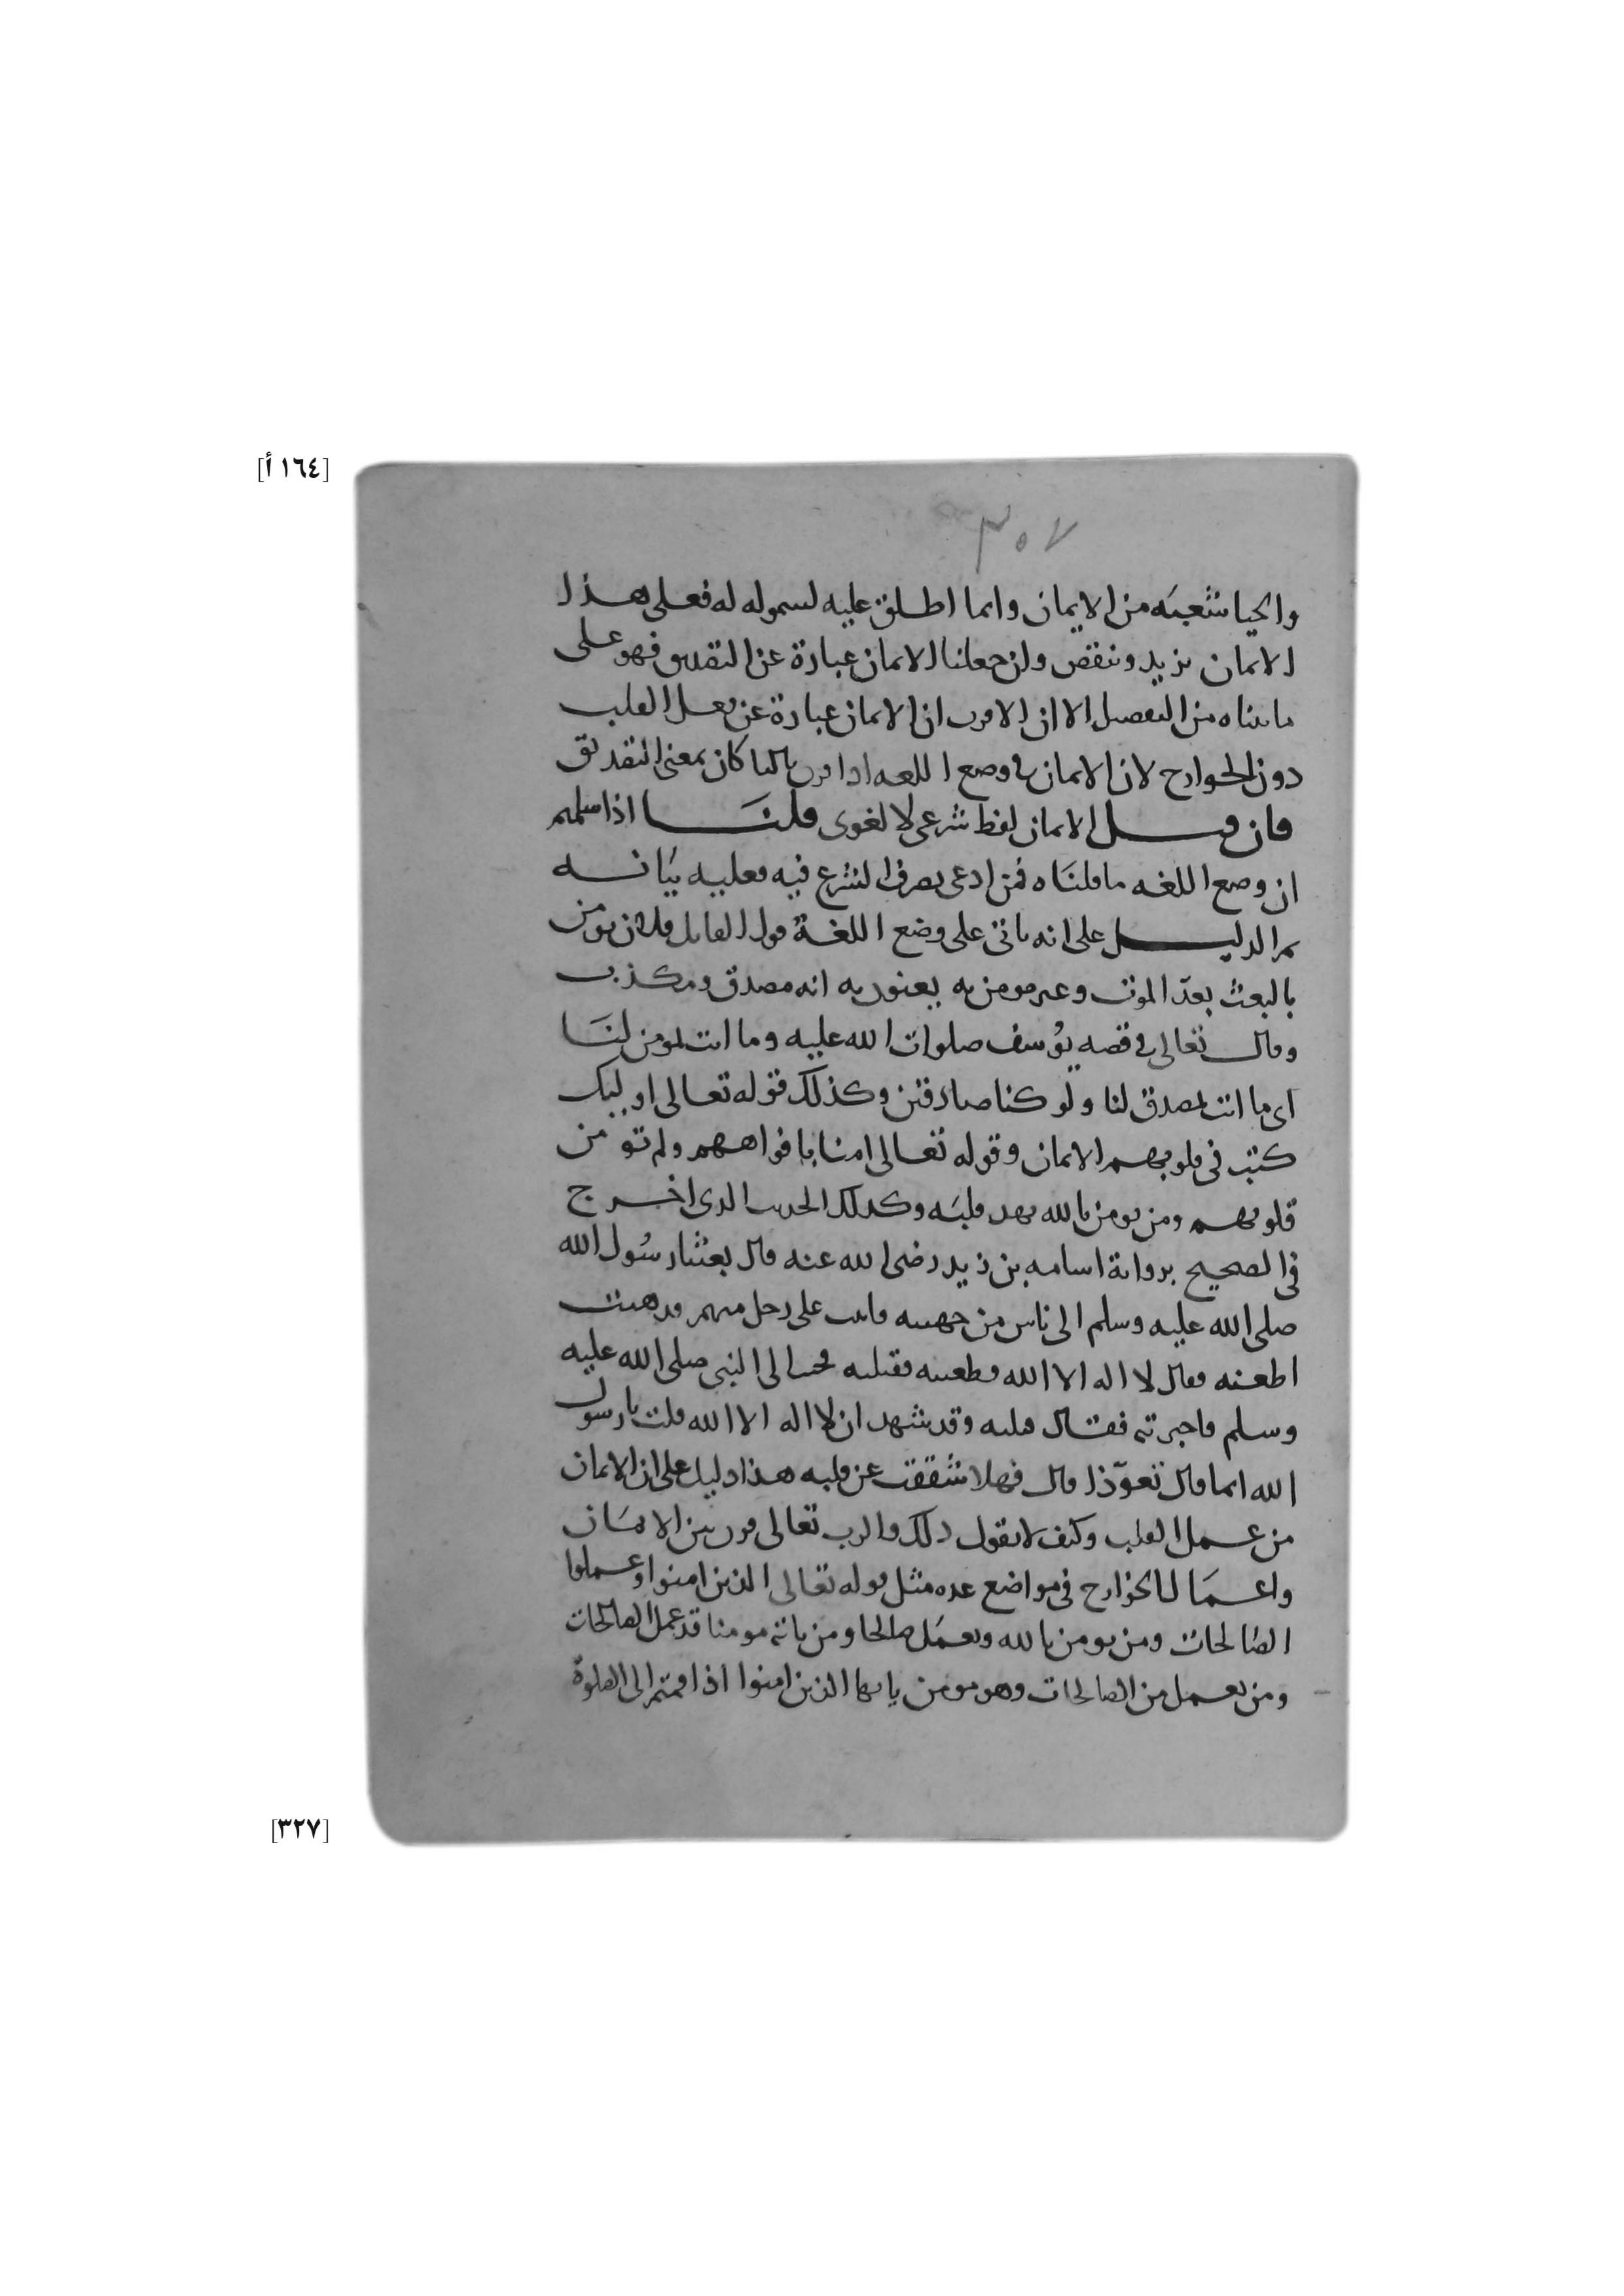 [١٦٤ أ]
٣٥٧
والحيا شعبه من الايمان وانما اطلق عليه لشموله له فعلى هذا
الايمان يزيد وينقص وان جعلنا الايمان عبارة عن التصديق فهو على
ما بيناه من التفصيل الا ان الاقرب ان الايمان عبارة عن فعل القلب
دون الجوارح لان الايمان في وضع اللغه اذا قرن بالبا كان بمعنى التصديق
فان قيل الايمان لفظ شرعي لا لغوى قلنا اذا سلمتم
ان وضع اللغه ما قلناه فمن ادعى تصرف الشرع فيه فعليه بيانه
ثم الدليل على انه باقى على وضع اللغة قول القايل فلان يومن
بالبعث بعد الموت وغير مومن به يعنون به انه مصدق ومكذب
وقال تعالى في قصه يوسف صلوات الله عليه وما انت بمومن لنا
اى ما انت بمصدق لنا ولو كنا صادقين وكذلك قوله تعالى اوليك
كتب في قلوبهم الايمان وقوله تعالى امنا بافواههم ولم تومن
قلوبهم ومن يومن بالله يهد قلبه وكذلك الحديث الذى اخرج
في الصحيح برواية اسامه بن زيد رضى الله عنه قال بعثنا رسول الله
صلى الله عليه وسلم الى ناس من جهينه فاتيت على رجل منهم فذهبت
اطعنه فقال لا اله الا الله فطعنته فقتلته فجيت الى النبي صلى الله عليه
وسلم فاخبرته فقال قتلته وقد شهد ان لا اله الا الله قلت يا رسول
الله انما قال تعوّذا قال فهلا شققت عن قلبه هذا دليل على ان الايمان
من عمل القلب وكيف لا نقول ذلك والرب تعالى قرن بين الايمان
واعمال الجوارح في مواضع عده مثل قوله تعالى الذين امنوا وعملوا
الصالحات ومن يومن بالله ويعمل صالحا ومن ياته مومنا قد عمل الصالحات
ومن يعمل من الصالحات وهو مومن يا ايها الذين امنوا اذا قمتم الى الصلوة
[٣٢٧]